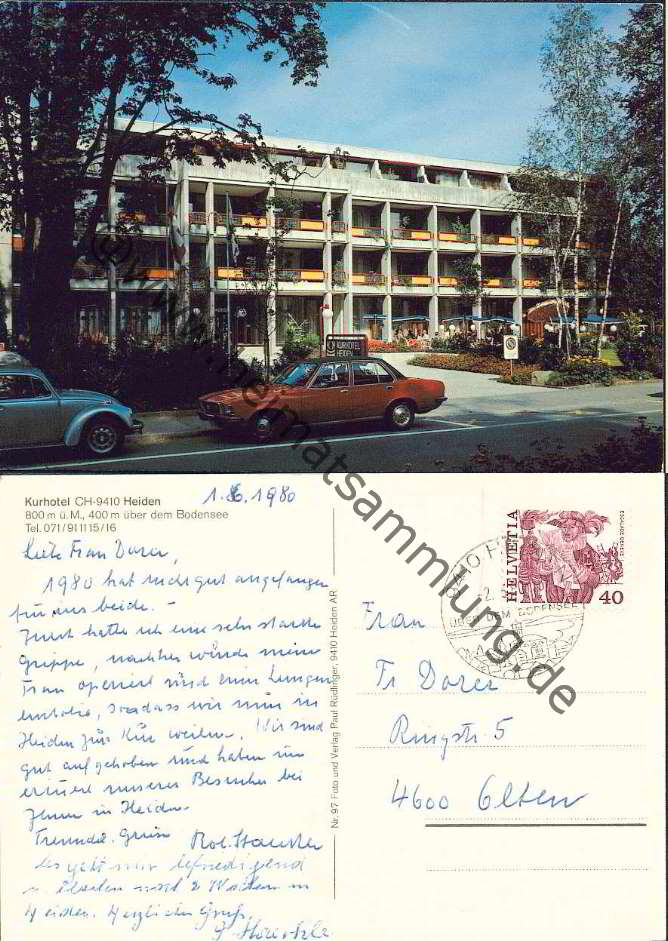 KURHOTEL
HEIDEN
www.heimatsammlung.de
Kurhotel CH-9410 Heiden
800 m ü. M., 400 m über dem Bodensee
Tel. 071/91 11 15/16
1.6.1980
Liebe Frau Dorer,
1980 hat nicht gut angefangen
für uns beide. -
Zuerst hatte ich eine sehr starke
Grippe, nachher wurde meine
Frau operiert und eine Lungen
embolie, sodass wir nun in
Heiden zur Kur weilen. Wir sind
gut aufgehoben und haben
unseres Besuches bei
Ihnen in Heiden.
Freundl. Grüsse
Es geht mir befriedigend
2 Wochen in
Heiden. Herzliche Grüsse
Nr. 97 Foto und Verlag Paul Rüdlinger, 9410 Heiden AR
HELVETIA
40
ÜBER DEM BODENSEE
Frau
Tr Dorer
Ringstr. 5
4600 Olten